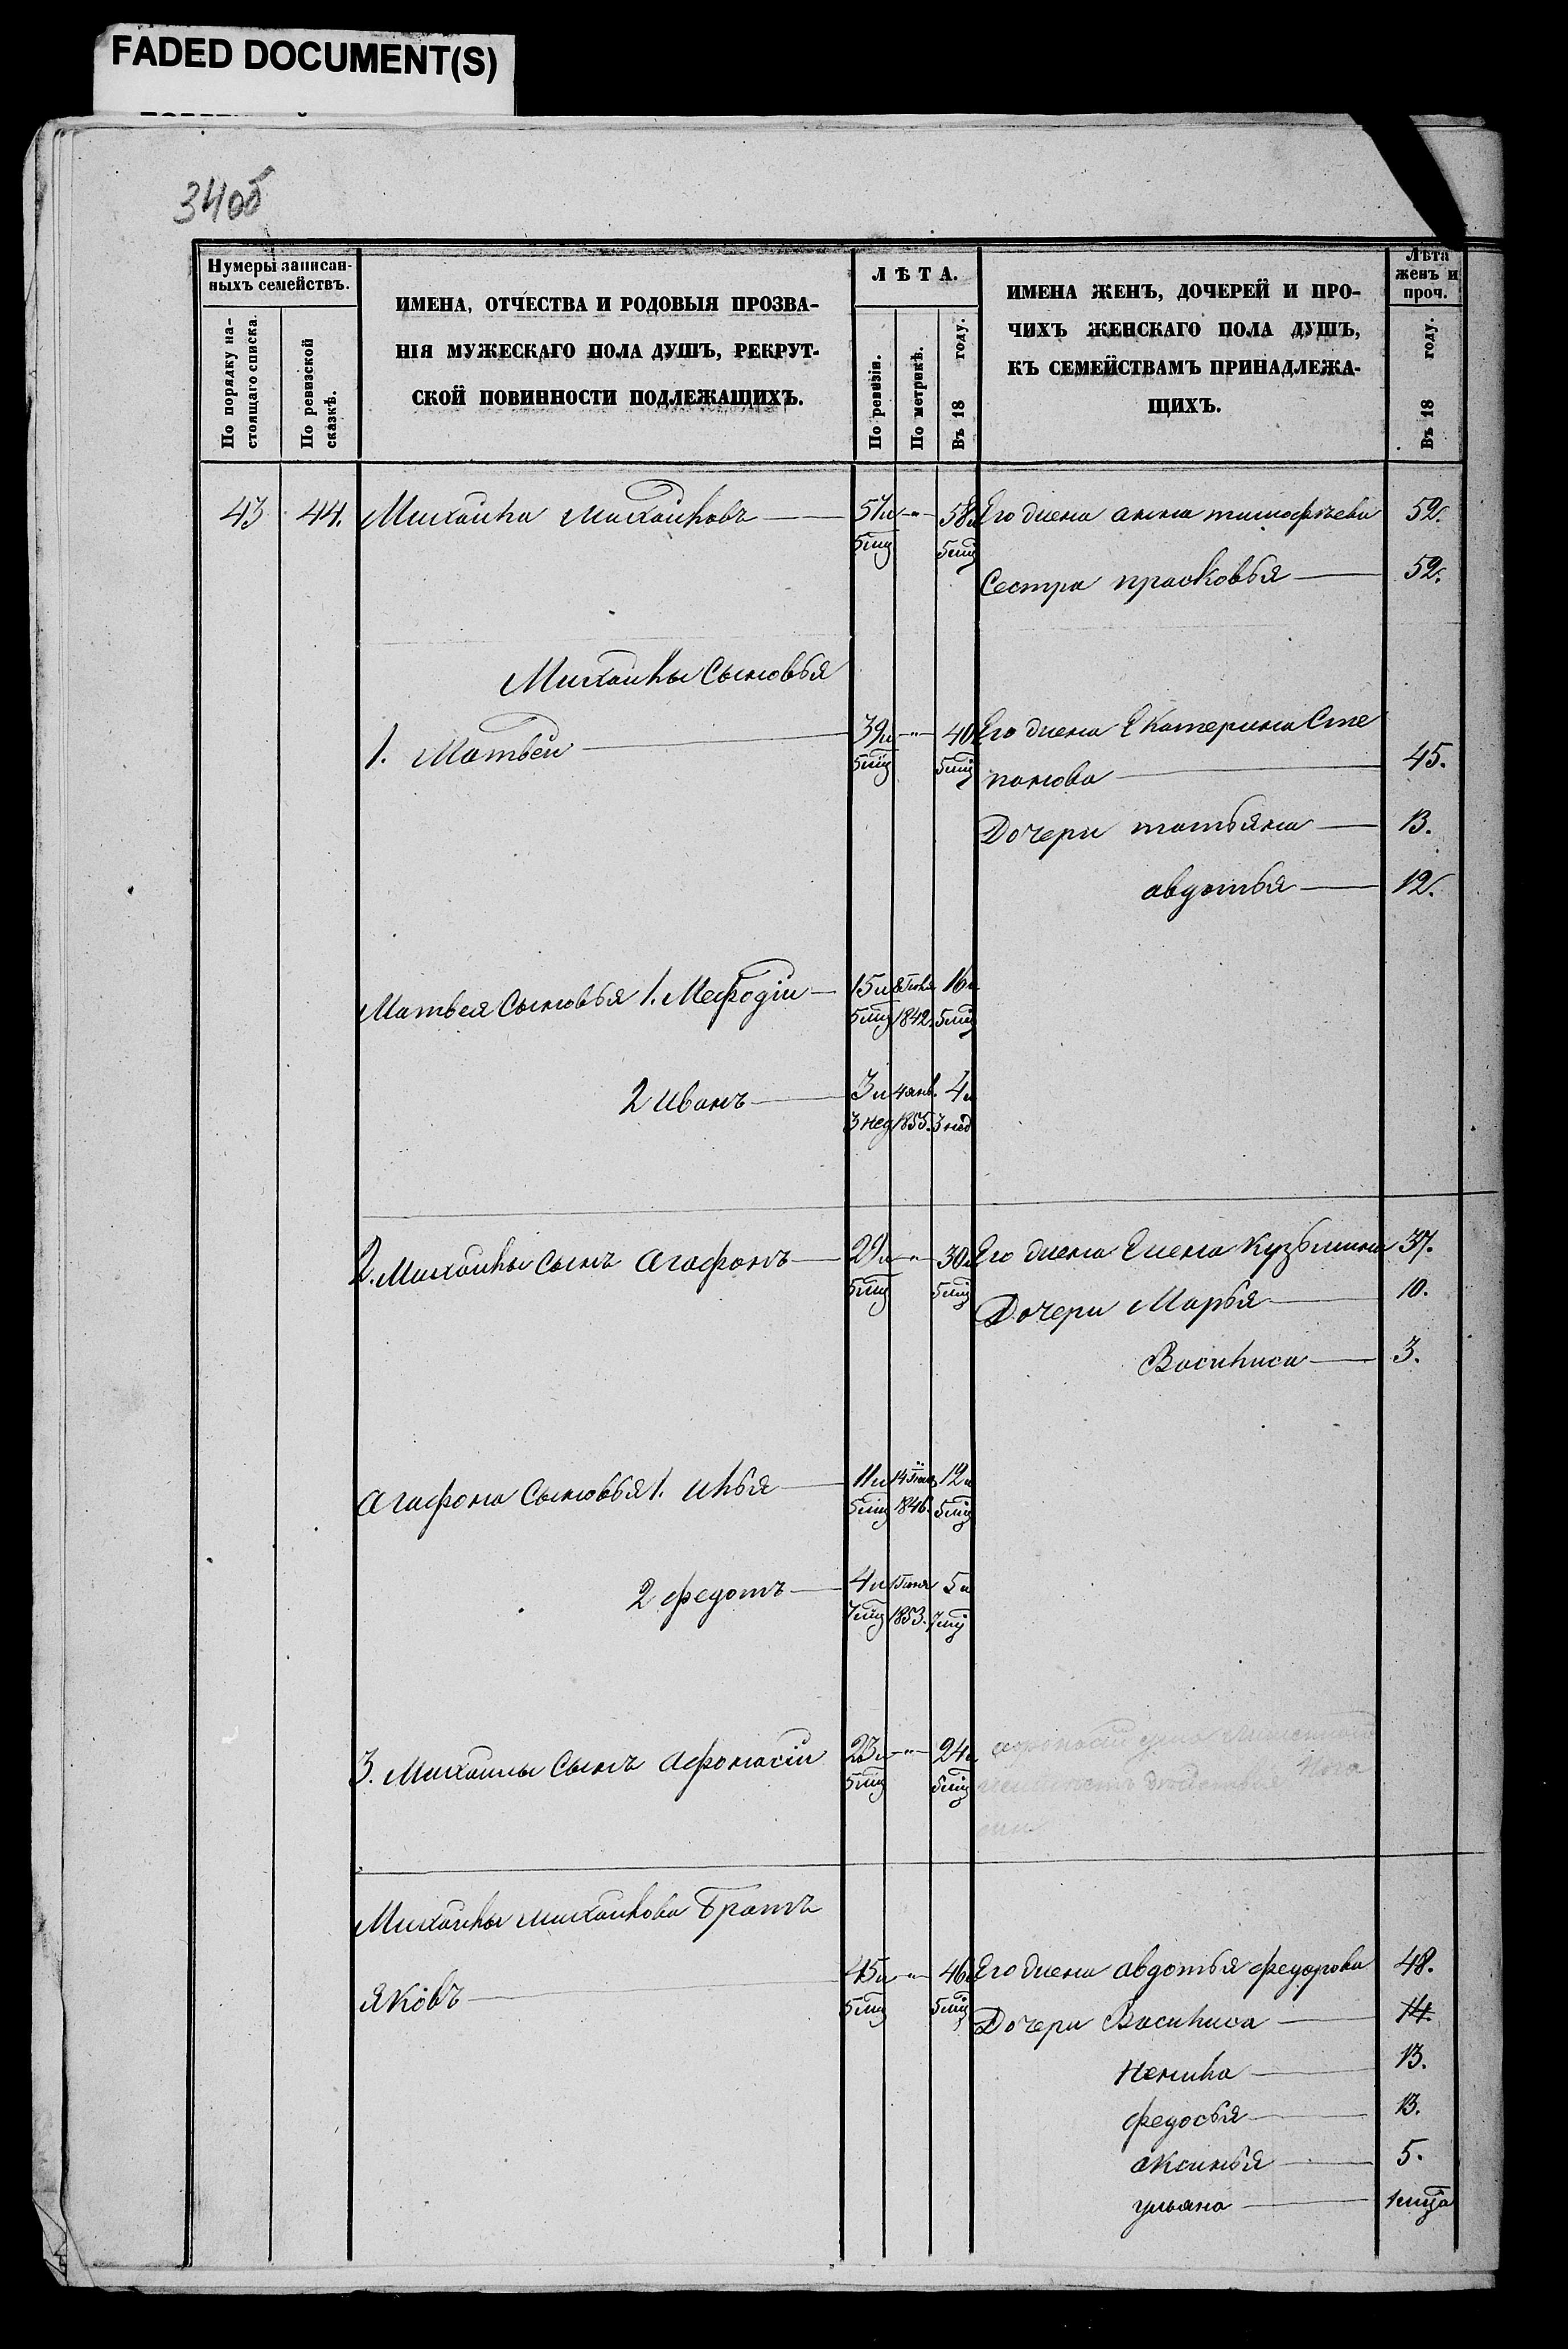 FADED DOCUMENT(S)
34об
Нумеры записан-
ныхъ семействъ.
По порядку на-
стоящаго списка.
По ревизской
сказкѣ.
ИМЕНА, ОТЧЕСТВА И РОДОВЫЯ ПРОЗВА-
НІЯ МУЖЕСКАГО ПОЛА ДУШЪ, РЕКРУТ-
СКОЙ ПОВИННОСТИ ПОДЛЕЖАЩИХЪ.
ЛѢТА.
По ревизіи.
По метрикѣ.
Въ 18 году.
ИМЕНА ЖЕНЪ, ДОЧЕРЕЙ И ПРО-
ЧИХЪ ЖЕНСКАГО ПОЛА ДУШЪ,
КЪ СЕМЕЙСТВАМЪ ПРИНАДЛЕЖА-
ЩИХЪ.
Лѣта
женъ и
проч.
Въ 18 году.
43 44. Михайла Михайловъ 57л 58л Его жена анна тимофѣева 52.
5мц 5мц
Сестра прасковья 52.
Михайлы Сыновья
1. Матвей 39л 40л Его жена Екатерина Сте
5мц 5мц панова 45.
Дочери татьяна 13.
авдотья 12.
Матвея Сыновья 1. Мефодіи 15л 16л
5мц 1842. 5мц
2 иванъ 3л 4янв. 4л
3нед 1855. 3нед
2. Михайлы Сынъ агафонъ 29л 30л Его жена Елена Кузьмина 37.
5мц 5мц
Дочери Марья 10.
Василиса 3.
агафона Сыновья 1. илья 11л 12л
5мц 1846. 5мц
2 федотъ 4л 5л
7мц 1853. 7мц
3. Михайлы Сынъ афонасіи 23л 24л
5мц 5мц
Михайлы михайлова Братъ
яковъ 45л 46л Его жена авдотья федорова 48.
5мц 5мц Дочери Василиса 14.
Ненила 13.
федосья 13.
аксинья 5.
ульяна 1мца